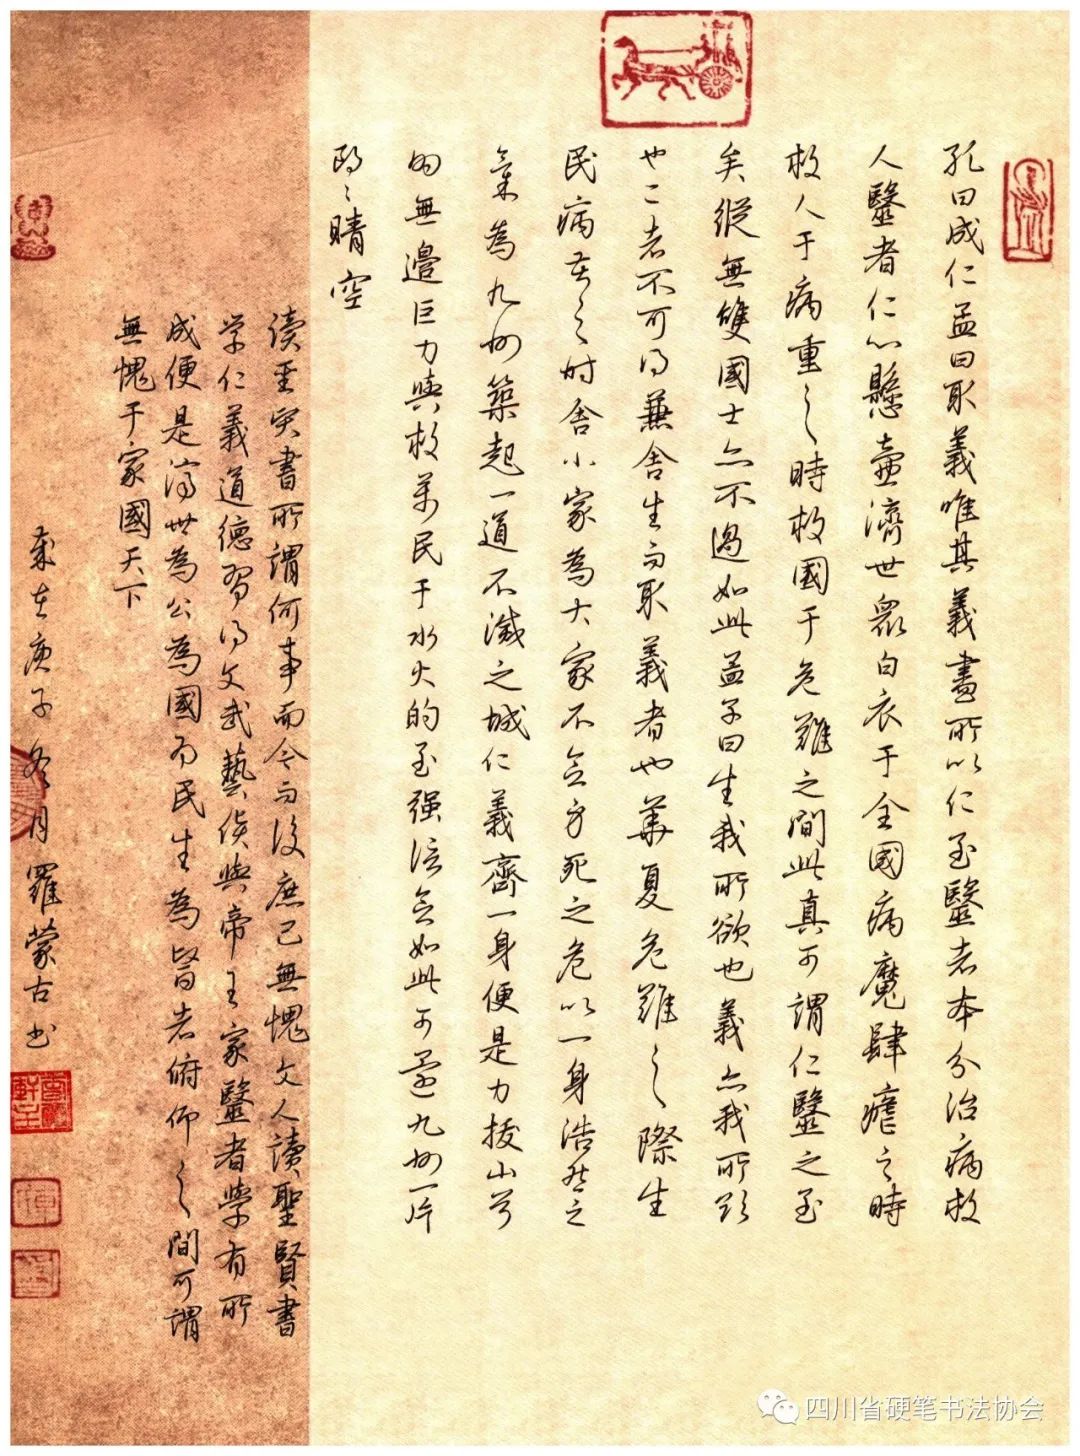 孔曰成仁孟曰取義唯其義盡所以仁至醫者本分治病救
人醫者仁心懸壺濟世眾白衣于全國病魔肆瘧之時
救人于病重之時救國于危難之間此真可謂仁醫之至
矣縱無雙國士亦不過如此孟子曰生我所欲也義亦我所欲
也二者不可得兼舍生而取義者也華夏危難之際生
民病苦之時舍小家為大家不念身死之危以一身浩然之
氣為九州築起一道不滅之城仁義齊一身便是力拔山兮
的無邊巨力與救萬民于水火的至强信念如此可還九州一片
朗朗晴空
读至賢書所謂何事而今而後庶己無愧文人讀聖賢書
学仁義道德習得文武藝貨與帝王家醫者學有所
成便是濟世為公為國为民生為醫者俯仰之間可謂
無愧于家國天下
歲在庚子冬月羅蒙古书
四川省硬笔书法协会